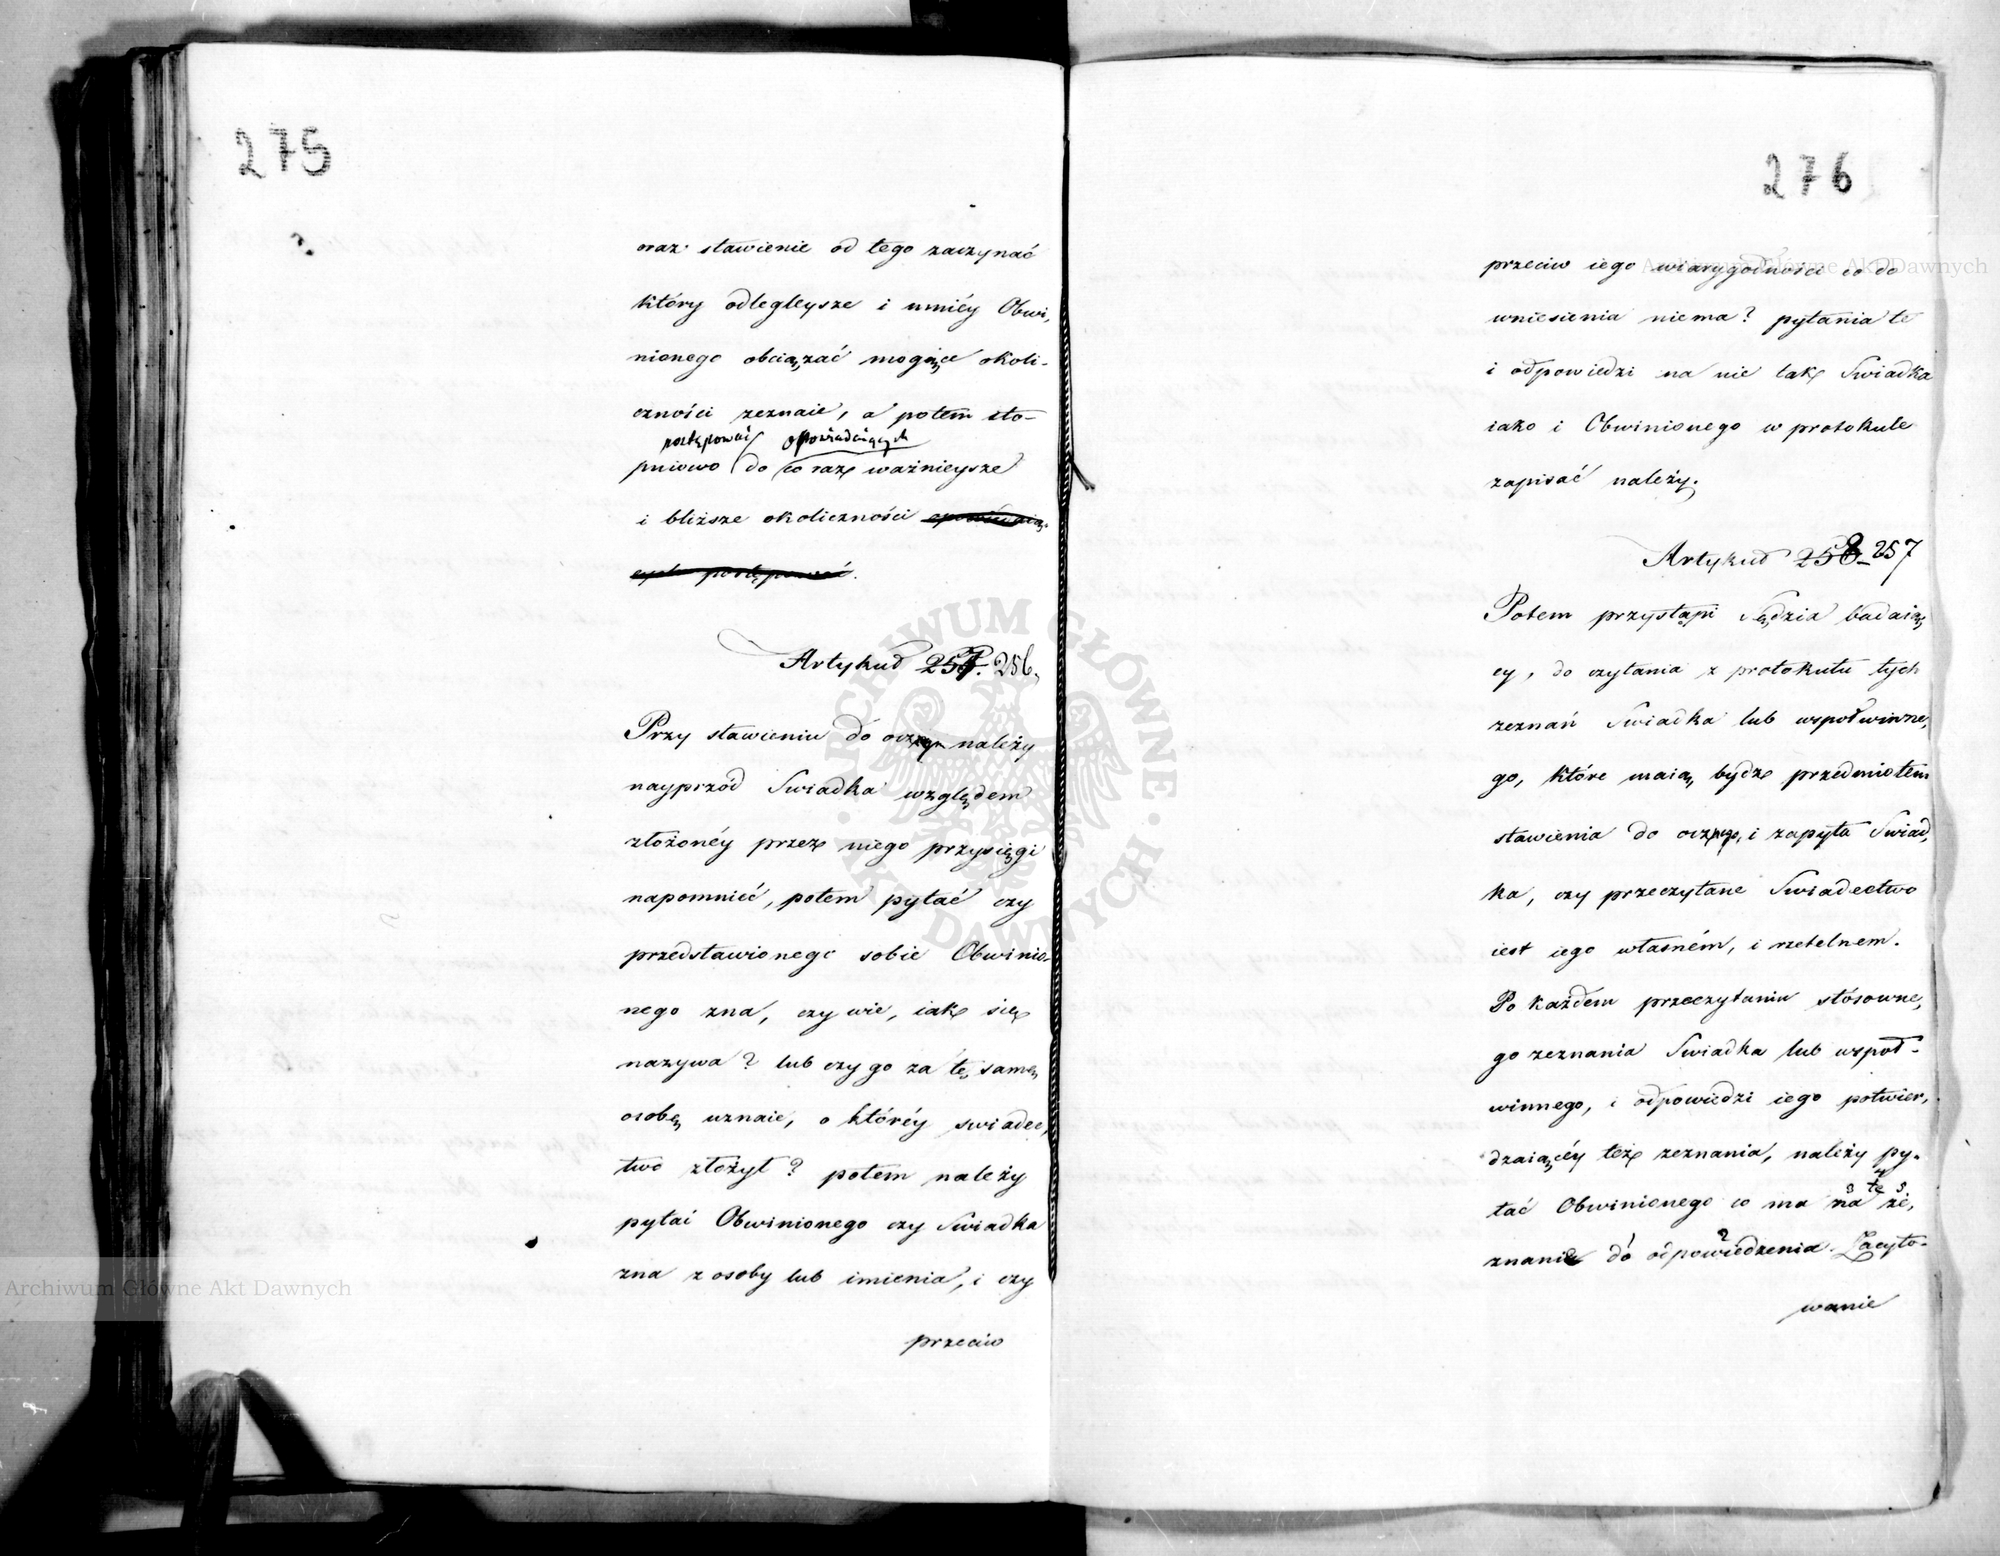 275
oraz stawienie od tego zaczynać
który odlegleysze i mniéy Obwi,
nionego obciążać mogące okoli-
czności zeznaie, a potem sto-
postępować opowiadaiących
pniowo do co raz ważnieysze
i bliższe okoliczności opowiadaią,
cych postępować.
Artykuł 257. 256.
Przy stawieniu do oczów należy
nayprzód Swiadka względem
złożonéy przez niego przysięgi
napomnieć, potem pytać czy
przedstawionego sobie Obwinio-
nego zna, czy wie, iak się
nazywa? lub czy go za tę samą
osobę uznaie, o któréy swiadec,
two złożył? potem należy
pytać Obwinionego czy Swiadka
zna z osoby lub imienia, i czy
przeciw
276
przeciw iego wiarygodności co do
wniesienia niema? pytania te
i odpowiedzi na nie tak Swiadka
iako i Obwinionego w protokule
zapisać należy.
Artykuł 258 257
Potem przystąpi Sędzia badaią,
cy, do czytania z protokułu tych
zeznań Swiadka lub wspołwinne,
go, które maią bydź przedmiotem
stawienia do oczego, i zapyta Swiad,
ka, czy przeczytane Swiadectwo
iest iego własném, i rzetelnem.
Po każdem przeczytaniu stósowne,
go zeznania Swiadka lub wspoł-
winnego, i odpowiedzi iego potwier,
dzaiącéy też zeznania, należy py-
tać Obwinionego co ma na te ze,
znanie do odpowiedzenia. Zacyto-
wanie
Archiwum Główne Akt Dawnych
Archiwum Główne Akt Dawnych
ARCHIWUM GŁÓWNE · AKT DAWNYCH ·